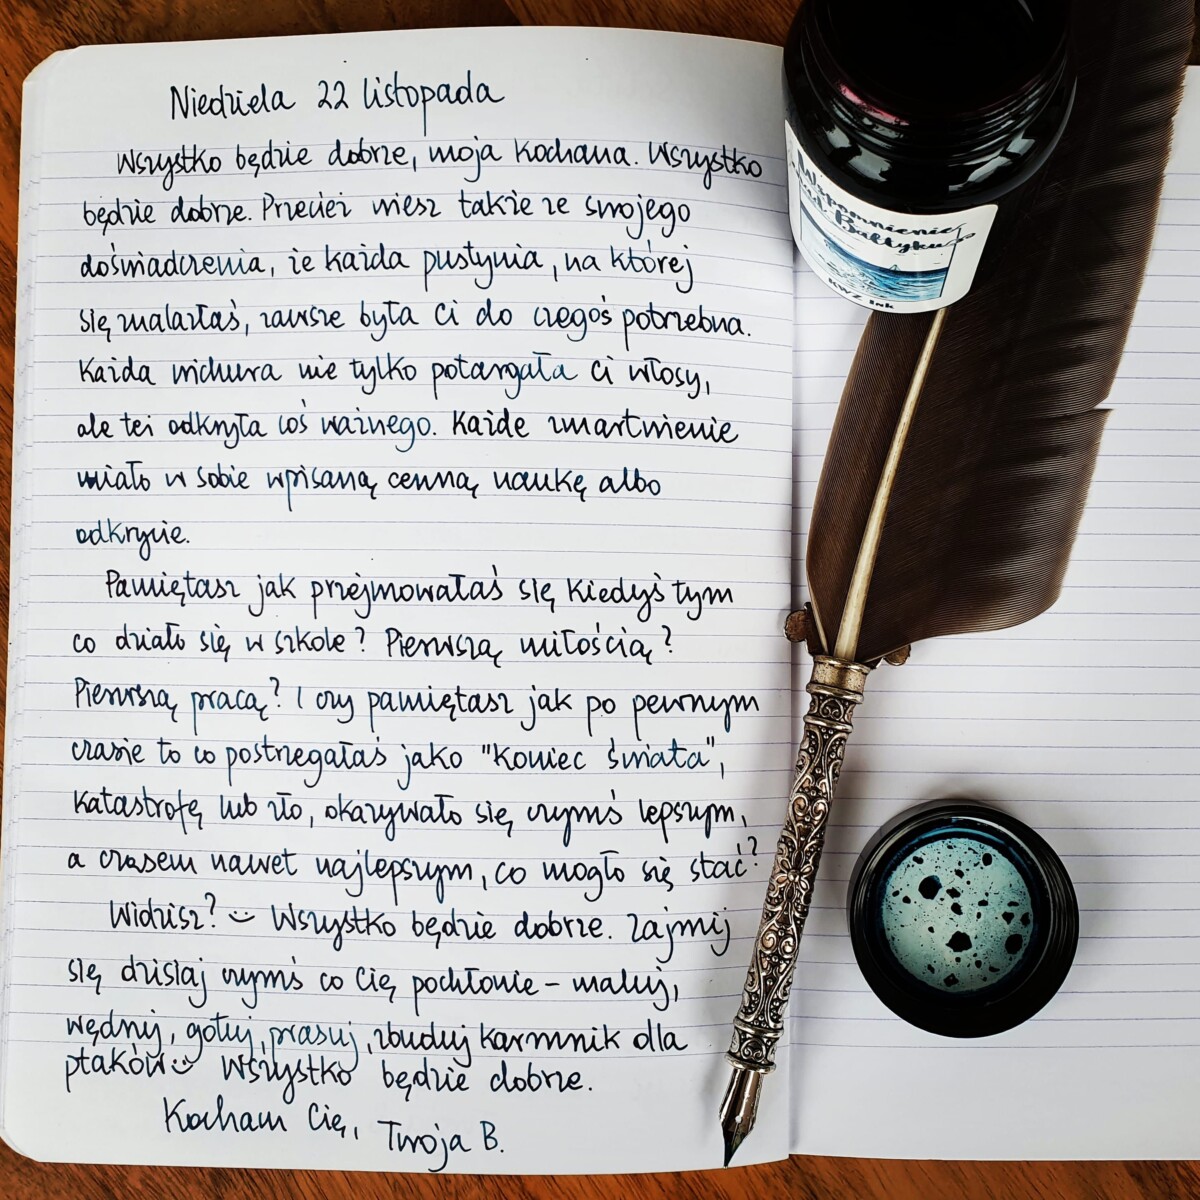 Niedziela 22 listopada
Wszystko będzie dobrze, moja kochana. Wszystko
będzie dobrze. Przecież wiesz także ze swojego
doświadczenia, że każda pustynia, na której
się znalazłaś, zawsze była Ci do czegoś potrzebna.
Każda wichura nie tylko potargała Ci włosy,
ale też odkryła coś ważnego. Każde zmartwienie
miało w sobie wpisaną cenną naukę albo
odkrycie.
Pamiętasz jak przejmowałaś się kiedyś tym
co działo się w szkole? Pierwszą miłością?
Pierwszą pracą? I czy pamiętasz jak po pewnym
czasie to co postrzegałaś jako "koniec świata",
katastrofę lub zło, okazywało się czymś lepszym,
a czasem nawet najlepszym, co mogło się stać?
Widzisz? :) Wszystko będzie dobrze. Zajmij
się dzisiaj czymś co Cię pochłonie – maluj,
wędruj, gotuj, prasuj, zbuduj karmnik dla
ptaków :) Wszystko będzie dobrze.
Kocham Cię, Twoja B.
Wspomnienie
znad Bałtyku
KWZ Ink